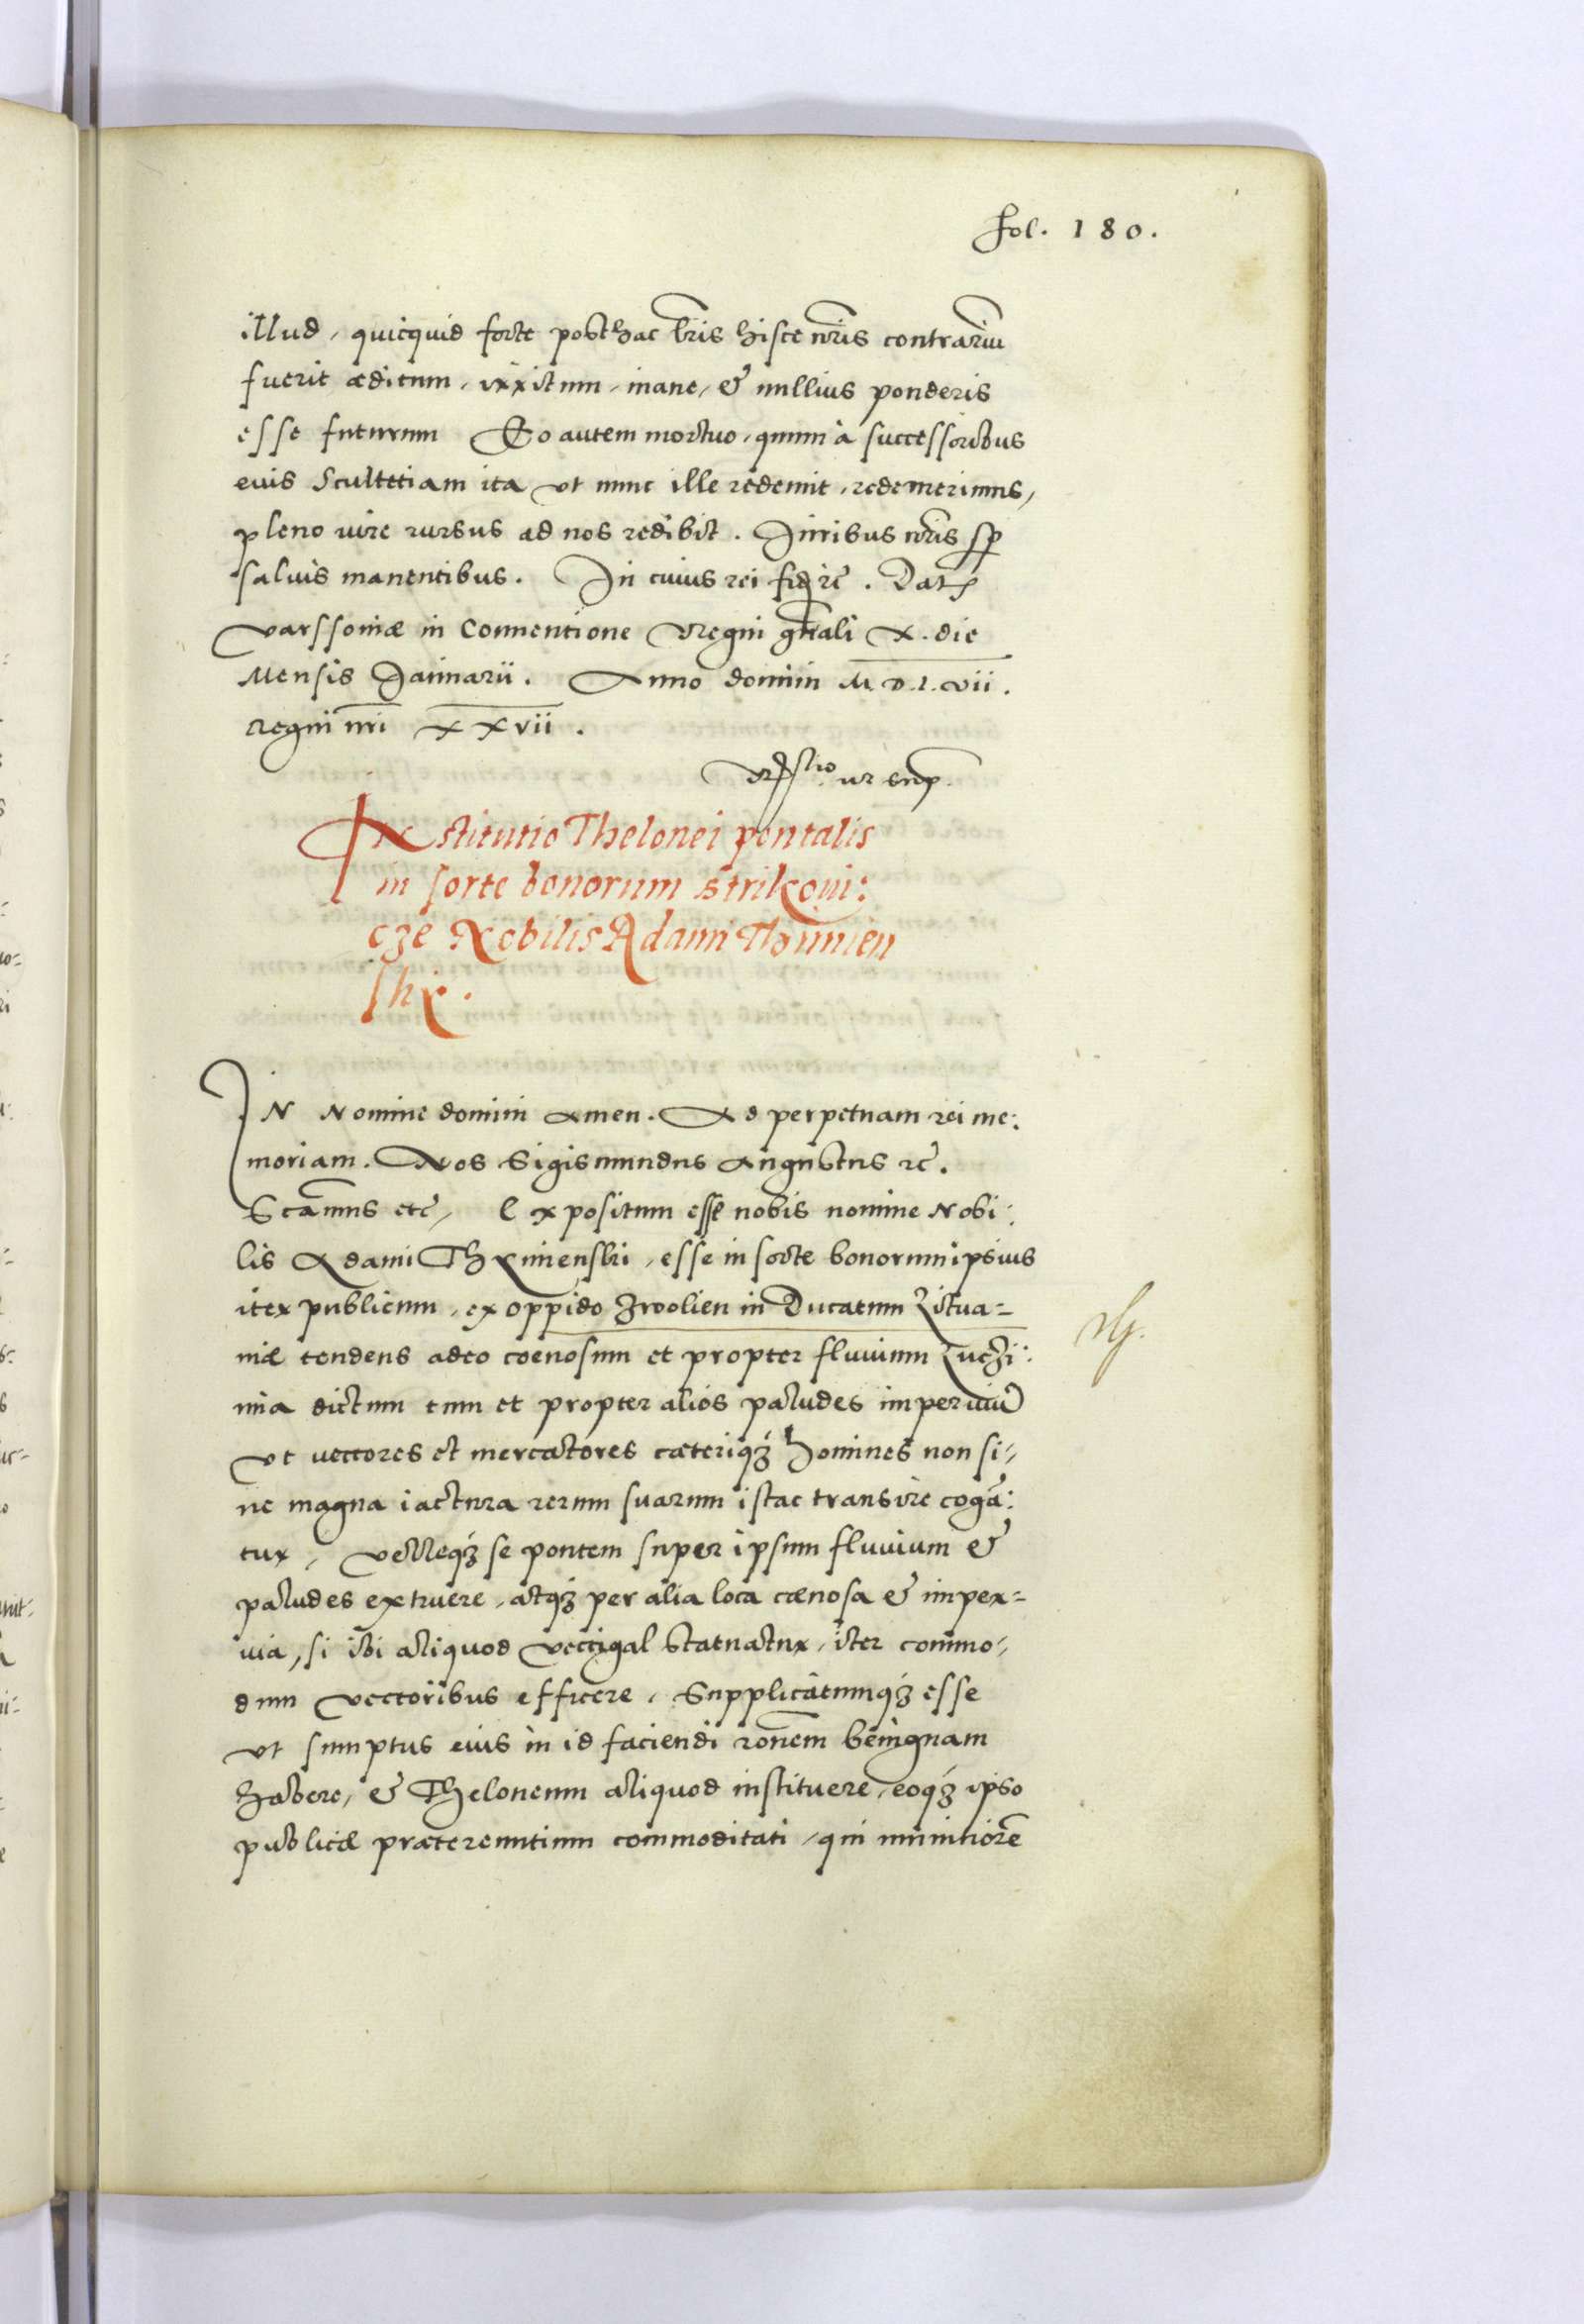 fol. 180.
illud, quicquid forte posthac lr̃is hisce nr̃is contrariũ
fuerit æditum, irritum, inane, & nullius ponderis
esse futurum Eo autem mortuo, quum à successoribus
euis Scultetiam ita vt nunc ille redemit, redemerimus,
pleno iure rursus ad nos redibit. Iuribus nr̃is sp̃
saluis manentibus. In cuius rei fid rc̃. Dat
Varssoniæ in Conuentione Regni gñali X. die
Mensis Ianuarii. Anno domini M.D.L.vii.
Regni nr̃i XXvii.
Rãtio ut sup.
Institutio Thelonei pontalis
in sorte bonorum Strilkoui:
cze Nobilis Adami
IN Nomine domini Amen. Ad perpetuam rei me:
moriam. Nos Sigismundus Augustus rc̃.
Scãmus etc̃, Expositum esse nobis nomine Nobi:
lis Adami Thximenski, esse in sorte bonorum ipsius
iter publicum, ex oppido Zwolien in Ducatum Litua=
niæ tendens adeo coenosum et propter fluuium Luczi:
mia dictum tum et propter alios paludes imperuiũ
vt vectores et mercatores cæteriqꝫ homines non si=
ne magna iactura rerum suarum istac transire cogã:
tur, Velleqꝫ se pontem super ipsum fluuium &
paludes extruere, atqꝫ per alia loca cænosa & imper=
uia, si ibi aliquod vectigal statuatur, iter commo=
dum vectoribus efficere, Supplicatumqꝫ esse
vt sumptus euis in id faciendi rõnem benignam
habere, & Theloneum aliquod instituere, eoqꝫ ipso
publicæ prætereuntium commoditati, qui munitiorẽ